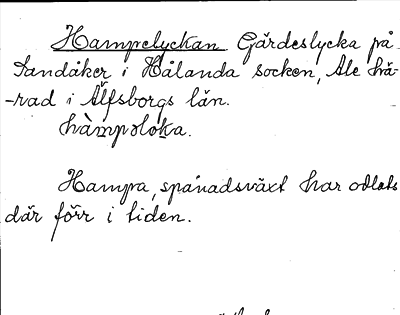 Hampelyckan Gärdeslycka på
Sandåker i Hålanda socken, Ale hä-
-rad i Älfsborgs län.
hàmpəloka.
Hampa, spånadsväxt har odlats
där förr i tiden.